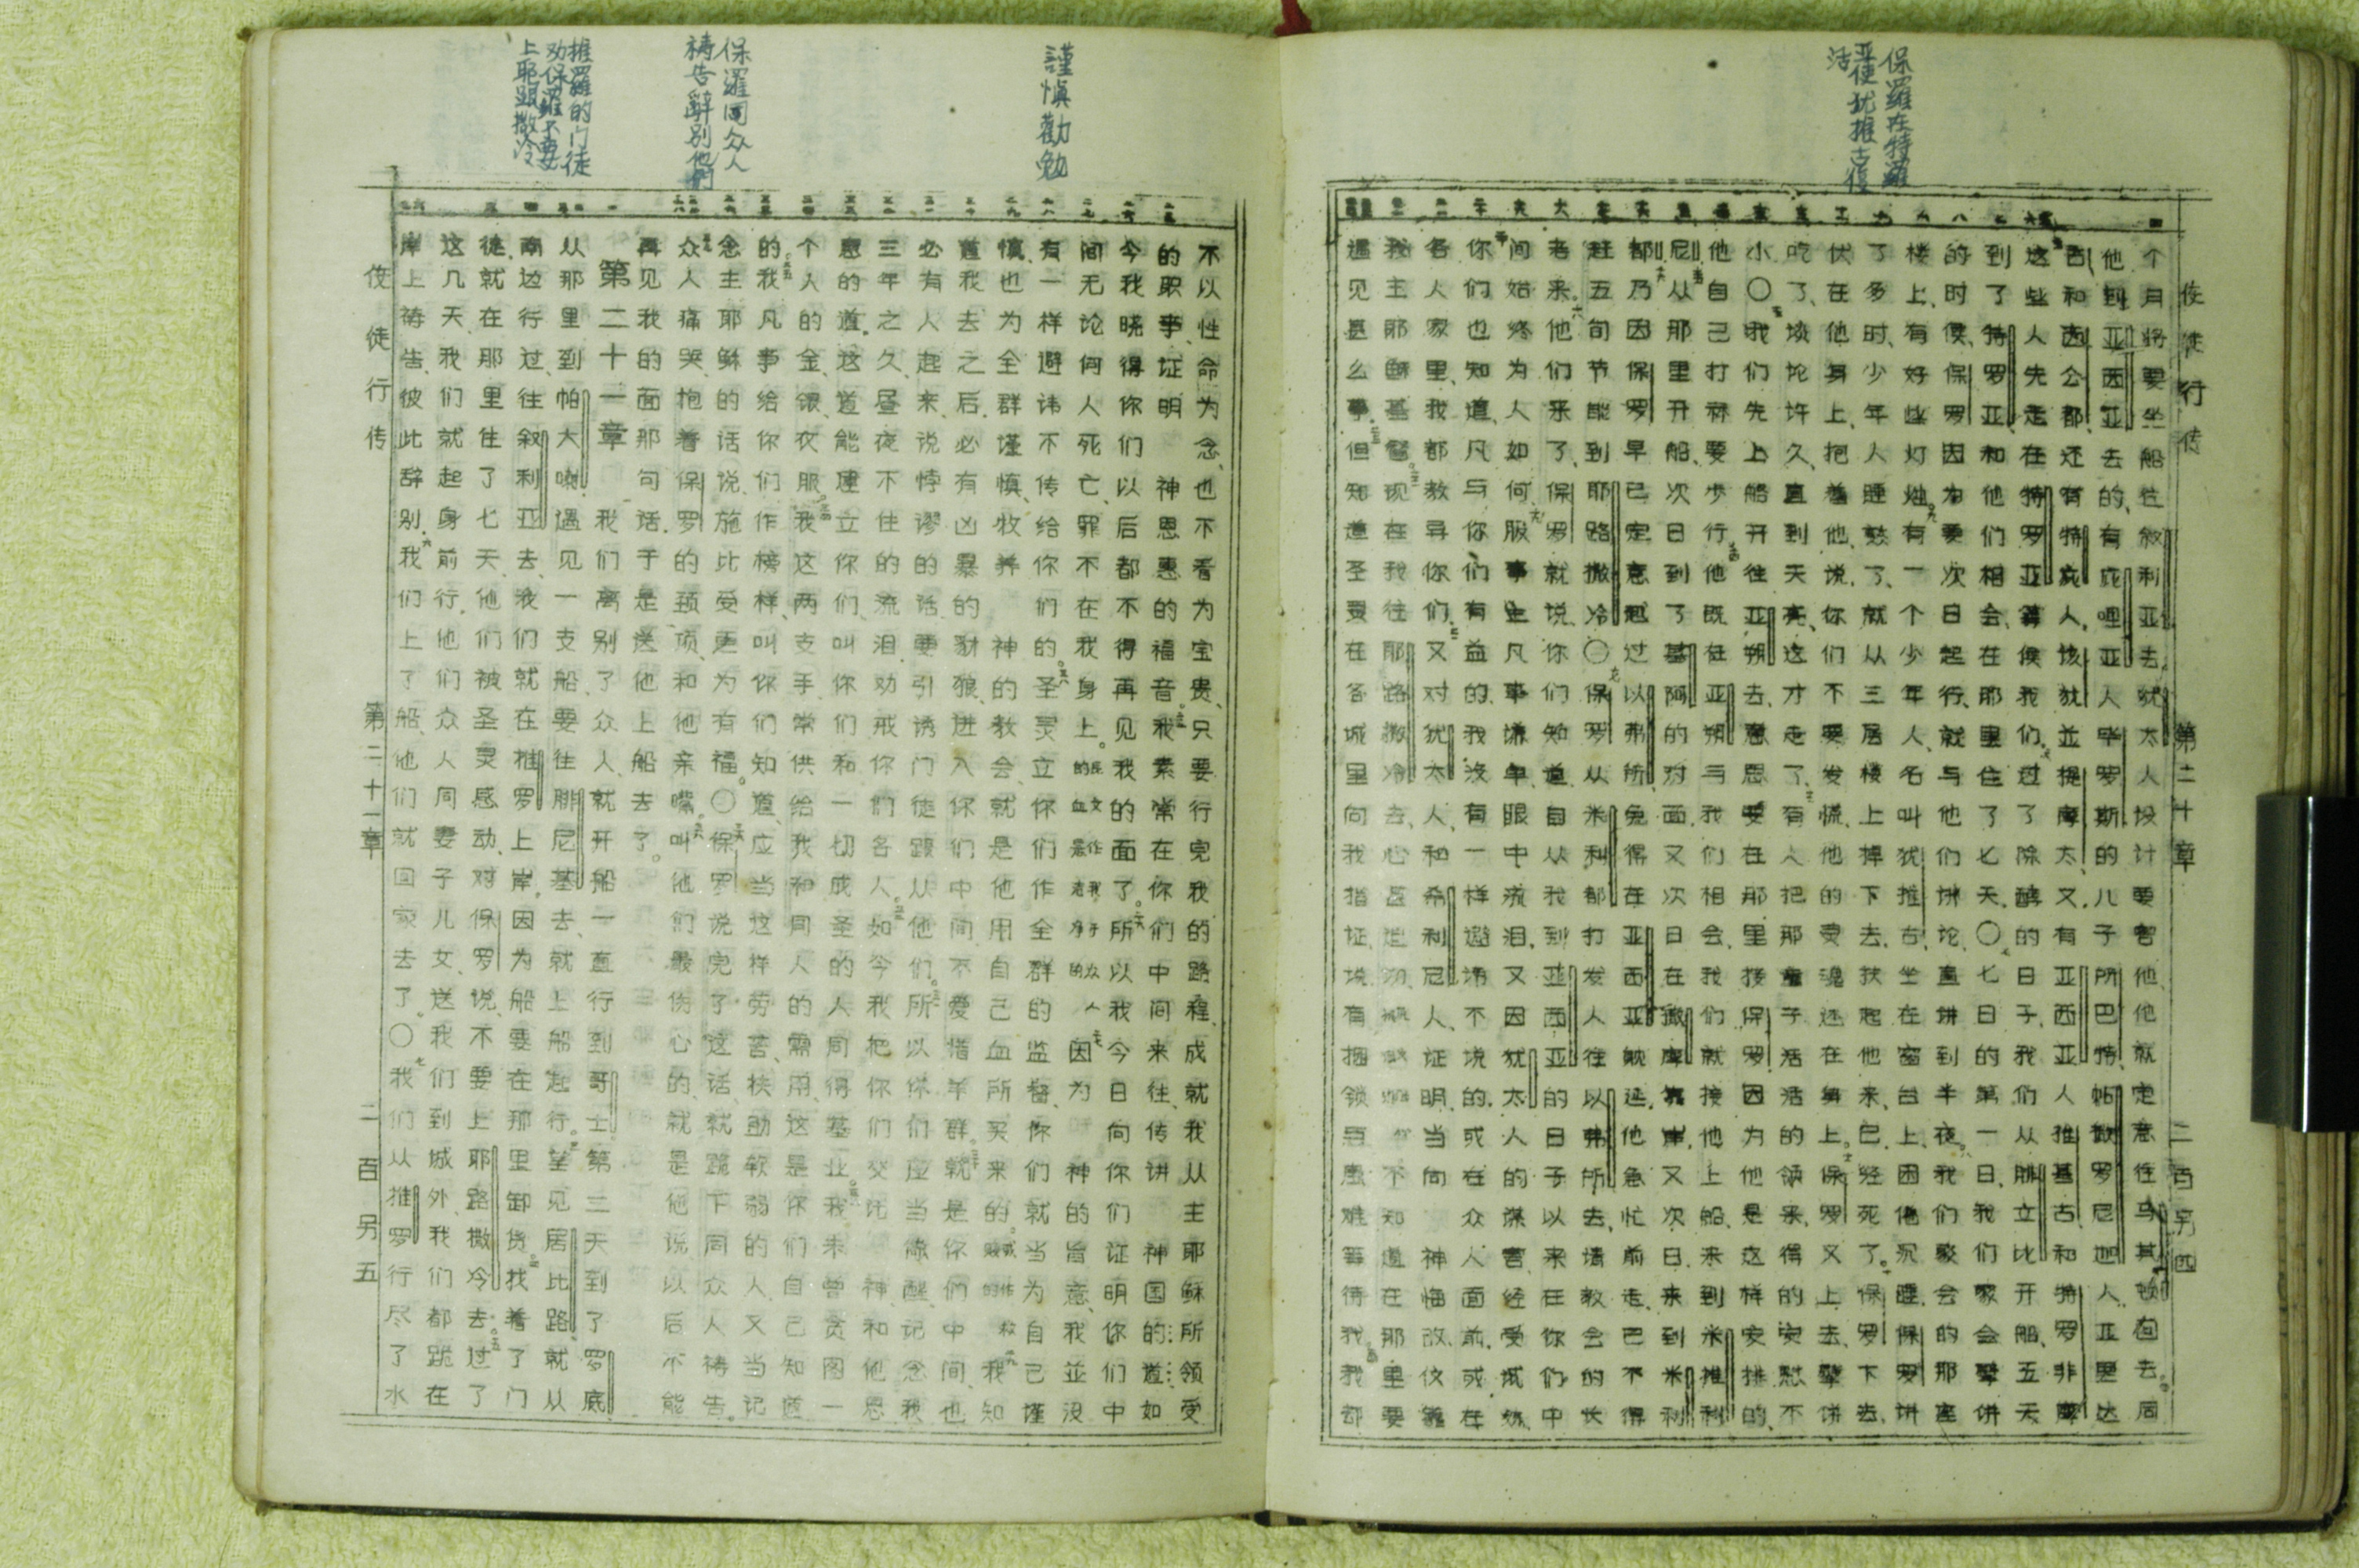 保羅在特羅
亚使犹推古復
活
使徒行传 第二十章 二百另四
个月将要坐船往叙利亚去。犹太人设计要害他他就定意往马其顿回去。同
他到亚西亚去的、有庇哩亚人毕罗斯的儿子所巴特、帖撒罗尼迦人、亚里达
古和西公都、还有特庇人、该犹並提摩太、又有亚西亚人推基古和特罗非摩
这些人先走在特罗亚等候我们。过了除酵的日子、我们从腓立比开船、五天
到了特罗亚和他们相会、在那里住了七天。〇七日的第一日、我们聚会擘饼
的时候、保罗因为要次日起行、就与他们讲论、直讲到半夜。我们聚会的那座
楼上、有好些灯烛、有一个少年人、名叫犹推古、坐在窗台上、困倦沉睡、保罗讲
了多时、少年人睡熟了、就从三层楼上掉下去、扶起他来、已经死了。保罗下去、
伏在他身上、抱着他、说、你们不要发慌、他的灵魂还在身上。保罗又上去、擘饼
吃了、谈论许久、直到天亮、这才走了。有人把那童子活活的领来、得的安慰不
小。〇我们先上船开往亚朔去、意思要在那里接保罗、因为他是这样安排的
他自己打算要步行。他既在亚朔与我们相会、我们就接他上船、来到米推利
尼。从那里开船、次日到了基阿的对面、又次日、在撒摩靠岸、又次日、来到米利
都。乃因保罗早已定意越过以弗所、免得在亚西亚耽延、他急忙前走、巴不得
赶五旬节能到耶路撒冷。〇保罗从米利都打发人往以弗所去、请教会的长
老来。他们来了、保罗就说、你们知道、自从我到亚西亚的日子以来、在你们中
间始终为人如何、服事主凡事谦卑、眼中流泪、又因犹太人的谋害、经受试炼
你们也知道、凡与你们有益的、我没有一样避讳不说的、或在众人面前、或在
各人家里、我都教导你们、又对犹太人、和希利尼人、证明当向 神悔改仗靠
我主耶稣基督。现在我往耶路撒冷去、心甚迫切 不知道在那里要
遇见甚么事、但知道圣灵在各城里向我指证、说有捆锁与患难等待我。我却
謹慎勸勉
保羅同众人
祷告辭别他們
推羅的门徒
劝保羅不要
上耶路撒冷
不以性命为念、也不看为宝贵、只要行完我的路程、成就我从主耶稣所领受
的职事、证明 神恩惠的福音。我素常在你们中间来往、传讲 神国的道、如
今我晓得你们以后都不得再见我的面了。所以我今日向你们证明、你们中
间无论何人死亡、罪不在我身上。因为 神的旨意、我並没
有一样避讳不传给你们的。圣灵立你们作全群的监督、你们就当为自己谨
慎、也为全群谨慎、牧养 神的教会、就是他用自己血所买来的。我知
道我去之后、必有凶暴的豺狼、进入你们中间、不爱惜羊群。就是你们中间、也
必有人起来、说悖谬的话、要引诱门徒跟从他们。所以你们应当儆醒、记念我
三年之久、昼夜不住的流泪、劝戒你们各人。如今我把你们交讬 神、和他恩
惠的道。这道能建立你们、叫你们和一切成圣的人同得基业。我未曾贪图一
个人的金、银、衣服。我这两支手、常供给我和同人的需用、这是你们自己知道
的。我凡事给你们作榜样、叫你们知道、应当这样劳苦、扶助软弱的人、又当记
念主耶稣的话、说、施比受更为有福。〇保罗说完了这话、就跪下同众人祷告。
众人痛哭、抱着保罗的颈项、和他亲嘴。叫他们最伤心的、就是他说、以后不能
再见我的面那句话。于是送他上船去了。
第二十一章 我们离别了众人、就开船一直行到哥士。第二天到了罗底
从那里到帕大喇、遇见一支船、要往腓尼基去、就上船起行。望见居比路、就从
南边行过、往叙利亚去、我们就在推罗上岸。因为船要在那里卸货。找着了门
徒、就在那里住了七天、他们被圣灵感动、对保罗说、不要上耶路撒冷去。过了
这几天、我们就起身前行。他们众人同妻子儿女、送我们到城外、我们都跪在
岸上祷告、彼此辞别。我们上了船、他们就回家去了。〇我们从推罗行尽了水
使徒行传 第二十一章 二百另五